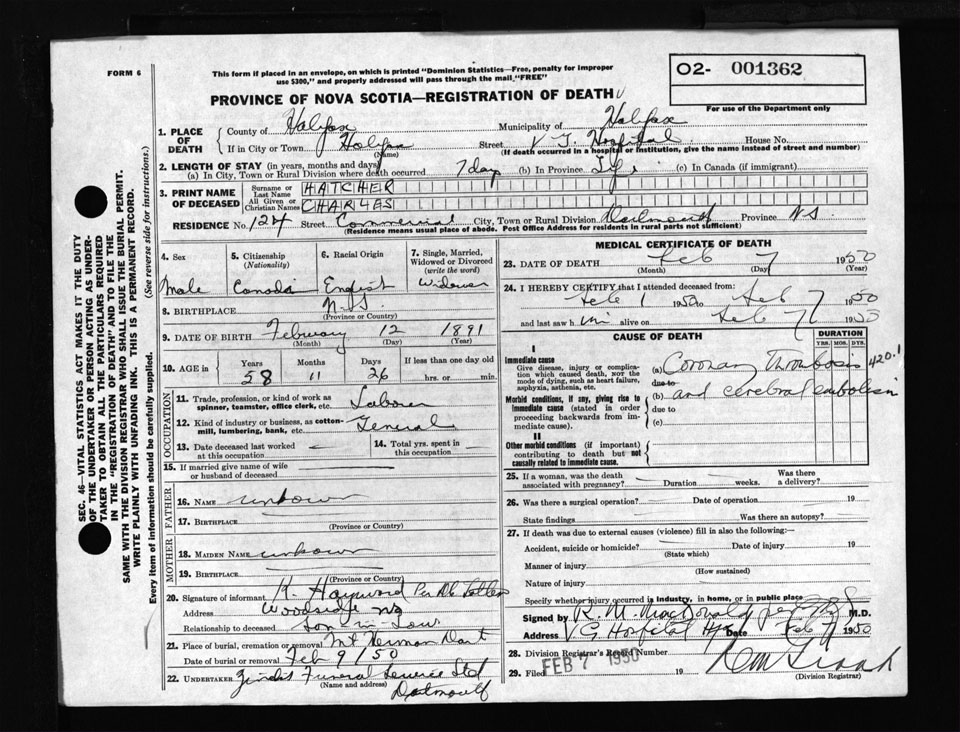 FORM 6
This form if placed in an envelope, on which is printed "Dominion Statistics—Free, penalty for improper
use $300," and properly addressed will pass through the mail, "FREE"
O2- 001362
For use of the Department only
PROVINCE OF NOVA SCOTIA—REGISTRATION OF DEATH
1. PLACE OF DEATH { County of Halifax Municipality of Halifax
If in City or Town Halifax (Name) Street V G Hospital House No.
(If death occurred in a hospital or institution, give the name instead of street and number)
2. LENGTH OF STAY (in years, months and days)
(a) In City, Town or Rural Division where death occurred 7 days (b) In Province Life (c) In Canada (if immigrant)
3. PRINT NAME OF DECEASED { Surname or Last Name HATCHER
All Given or Christian Names CHARLES
RESIDENCE No. 124 Street Commercial City, Town or Rural Division Dartmouth Province N.S.
(Residence means usual place of abode. Post Office Address for residents in rural parts not sufficient)
4. Sex 5. Citizenship (Nationality) 6. Racial Origin 7. Single, Married, Widowed or Divorced (write the word)
Male Canada English Widower
8. BIRTHPLACE N.S.
(Province or Country)
9. DATE OF BIRTH February 12 1891
(Month) (Day) (Year)
10. AGE in { Years Months Days If less than one day old
58 11 26 hrs. or min.
OCCUPATION
11. Trade, profession, or kind of work as spinner, teamster, office clerk, etc. Laborer
12. Kind of industry or business, as cotton-mill, lumbering, bank, etc. General
13. Date deceased last worked at this occupation 14. Total yrs. spent in this occupation
15. If married give name of wife or husband of deceased
FATHER
16. Name unkown
17. Birthplace
(Province or Country)
MOTHER
18. Maiden Name unkown
19. Birthplace
(Province or Country)
20. Signature of informant K. Hayward Per
Address Woodside NS
Relationship to deceased Son-in-Law
21. Place of burial, cremation or removal Mt Herman Dart
Date of burial or removal Feb 9 / 50
22. UNDERTAKER Funeral Service Ltd
(Name and address) Dartmouth
MEDICAL CERTIFICATE OF DEATH
23. DATE OF DEATH Feb 7 1950
(Month) (Day) (Year)
24. I HEREBY CERTIFY that I attended deceased from:
Feb 1 1950 to Feb 7 1950
and last saw h im alive on Feb 7 1950
CAUSE OF DEATH DURATION
YRS. MOS. DYS.
I
Immediate cause
Give disease, injury or complication which caused death, not the mode of dying, such as heart failure, asphyxia, asthenia, etc.
(a) Coronary Thrombosis 420.1
due to
Morbid conditions, if any, giving rise to immediate cause (stated in order proceeding backwards from immediate cause).
(b) and cerebral embolism
due to
(c)
II
Other morbid conditions (if important) contributing to death but not causally related to immediate cause.
25. If a woman, was the death associated with pregnancy? Duration weeks. Was there a delivery?
26. Was there a surgical operation? Date of operation 19
State findings Was there an autopsy?
27. If death was due to external causes (violence) fill in also the following:
Accident, suicide or homicide? Date of injury 19
(State which)
Manner of injury
(How sustained)
Nature of injury
Specify whether injury occurred in industry, in home, or in public place
Signed by R. M. MacDonald per M.D.
Address V G Hospital Hfx Date Feb 7 1950
28. Division Registrar's Record Number
29. Filed FEB 7 1950 19
(Division Registrar)
SEC. 46—VITAL STATISTICS ACT MAKES IT THE DUTY
OF THE UNDERTAKER OR PERSON ACTING AS UNDER-
TAKER TO OBTAIN ALL THE PARTICULARS REQUIRED
IN THE "REGISTRATION OF DEATH" AND TO FILE THE
SAME WITH THE DIVISION REGISTRAR WHO SHALL ISSUE THE BURIAL PERMIT.
WRITE PLAINLY WITH UNFADING INK. THIS IS A PERMANENT RECORD.
Every item of information should be carefully supplied. (See reverse side for instructions.)